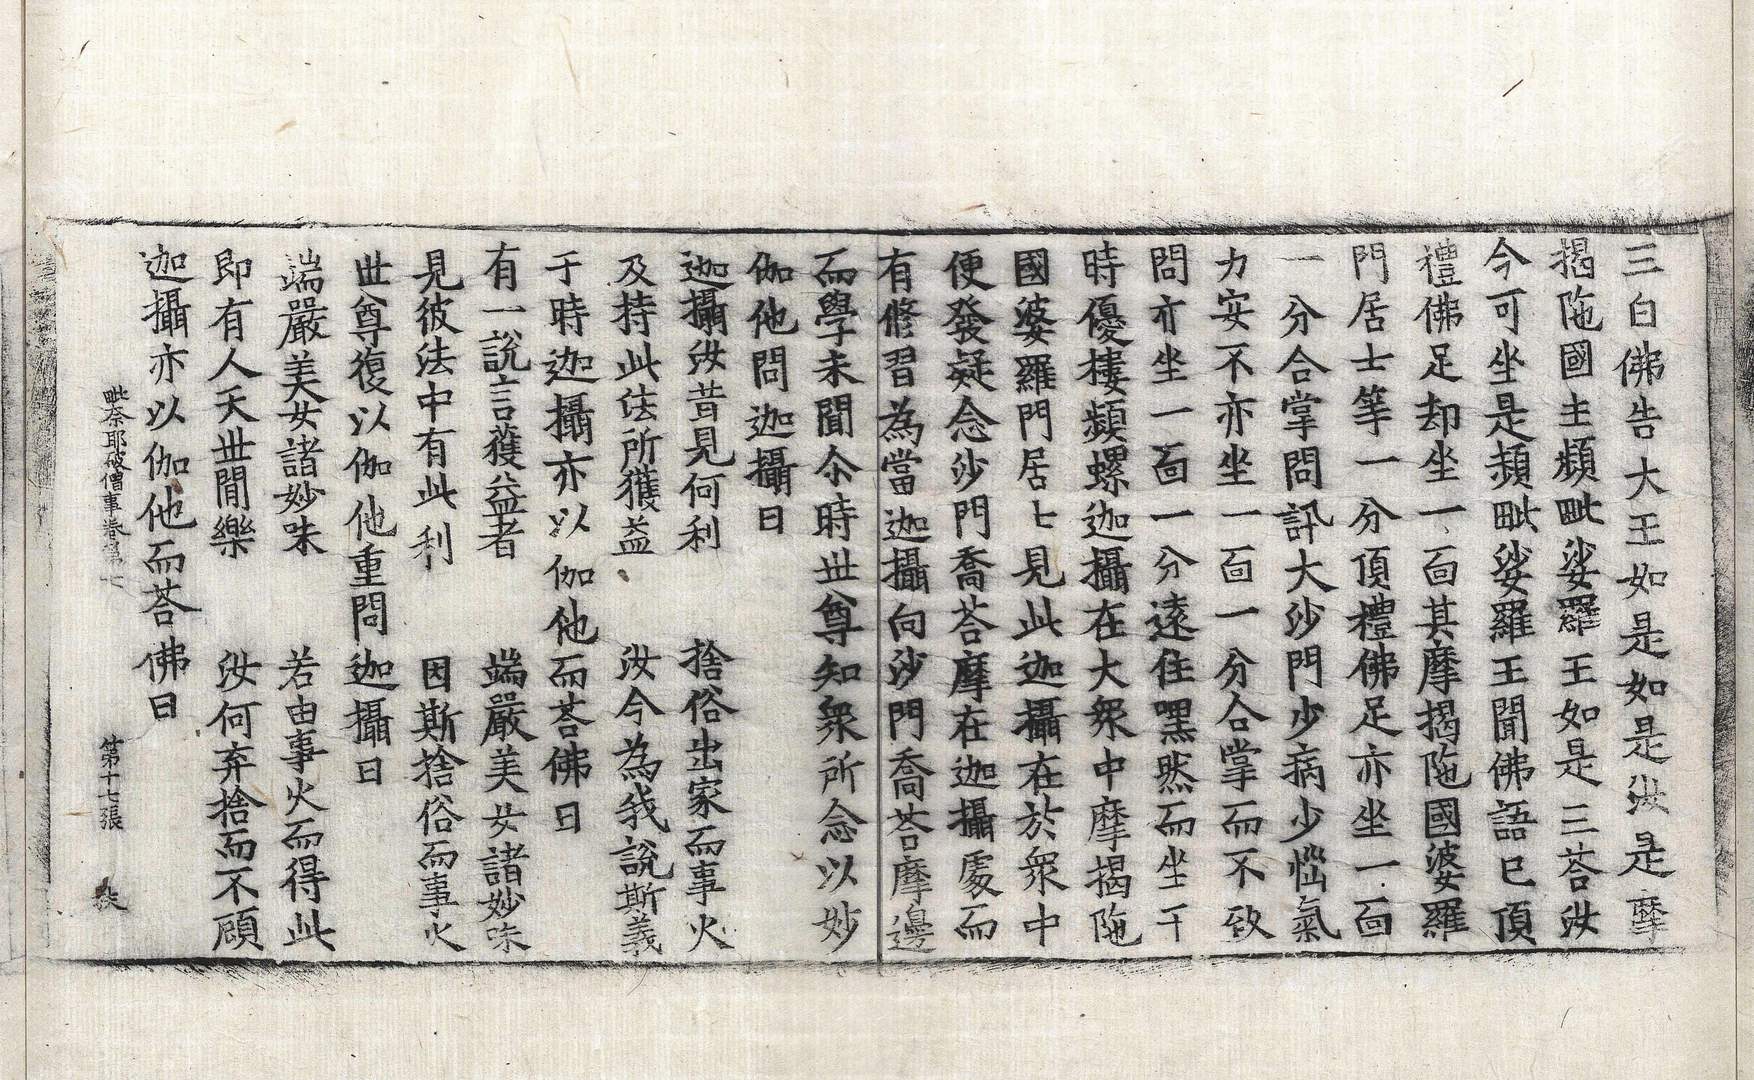 三白佛告大王如是如是如是汝是摩
揭陁國主頻毗娑羅王如是三荅汝
今可坐是頻毗娑羅王聞佛語已頂
禮佛足却坐一面其摩揭陁國婆羅
門居士等一分頂禮佛足亦坐一面
一分合掌問訊大沙門少病少惱氣
力安不亦坐一面一分合掌而不致
問亦坐一面一分遠住嘿然而坐于
時優樓頻螺迦攝在大衆中摩揭陁
國婆羅門居士見此迦攝在於衆中
便發疑念沙門喬荅摩在迦攝處而
有修習為當迦攝向沙門喬荅摩邊
而學未聞尒時世尊知衆所念以妙
伽他問迦攝曰
迦攝汝昔見何利　捨俗出家而事火
及持此法所獲益　汝今為我說斯義
于時迦攝亦以伽他而荅佛曰
有一說言獲益者　端嚴美女諸妙味
見彼法中有此利　因斯捨俗而事火
世尊復以伽他重問迦攝曰
端嚴美女諸妙味　若由事火而得此
即有人天世間樂　汝何弃捨而不顧
迦攝亦以伽他而荅佛曰
毗奈耶破僧事卷第七　第十七張